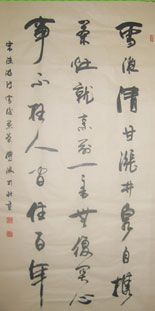 雪液清甘漲井泉自携
茶灶就烹煎一毫無復關心
事不枉人間住百年
宋陸游詩雪後煎茶